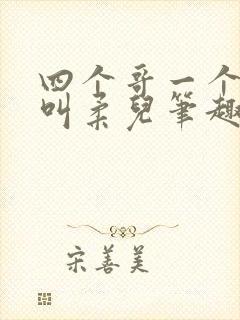 四个哥一个
叫柔儿筆趣
宋善美